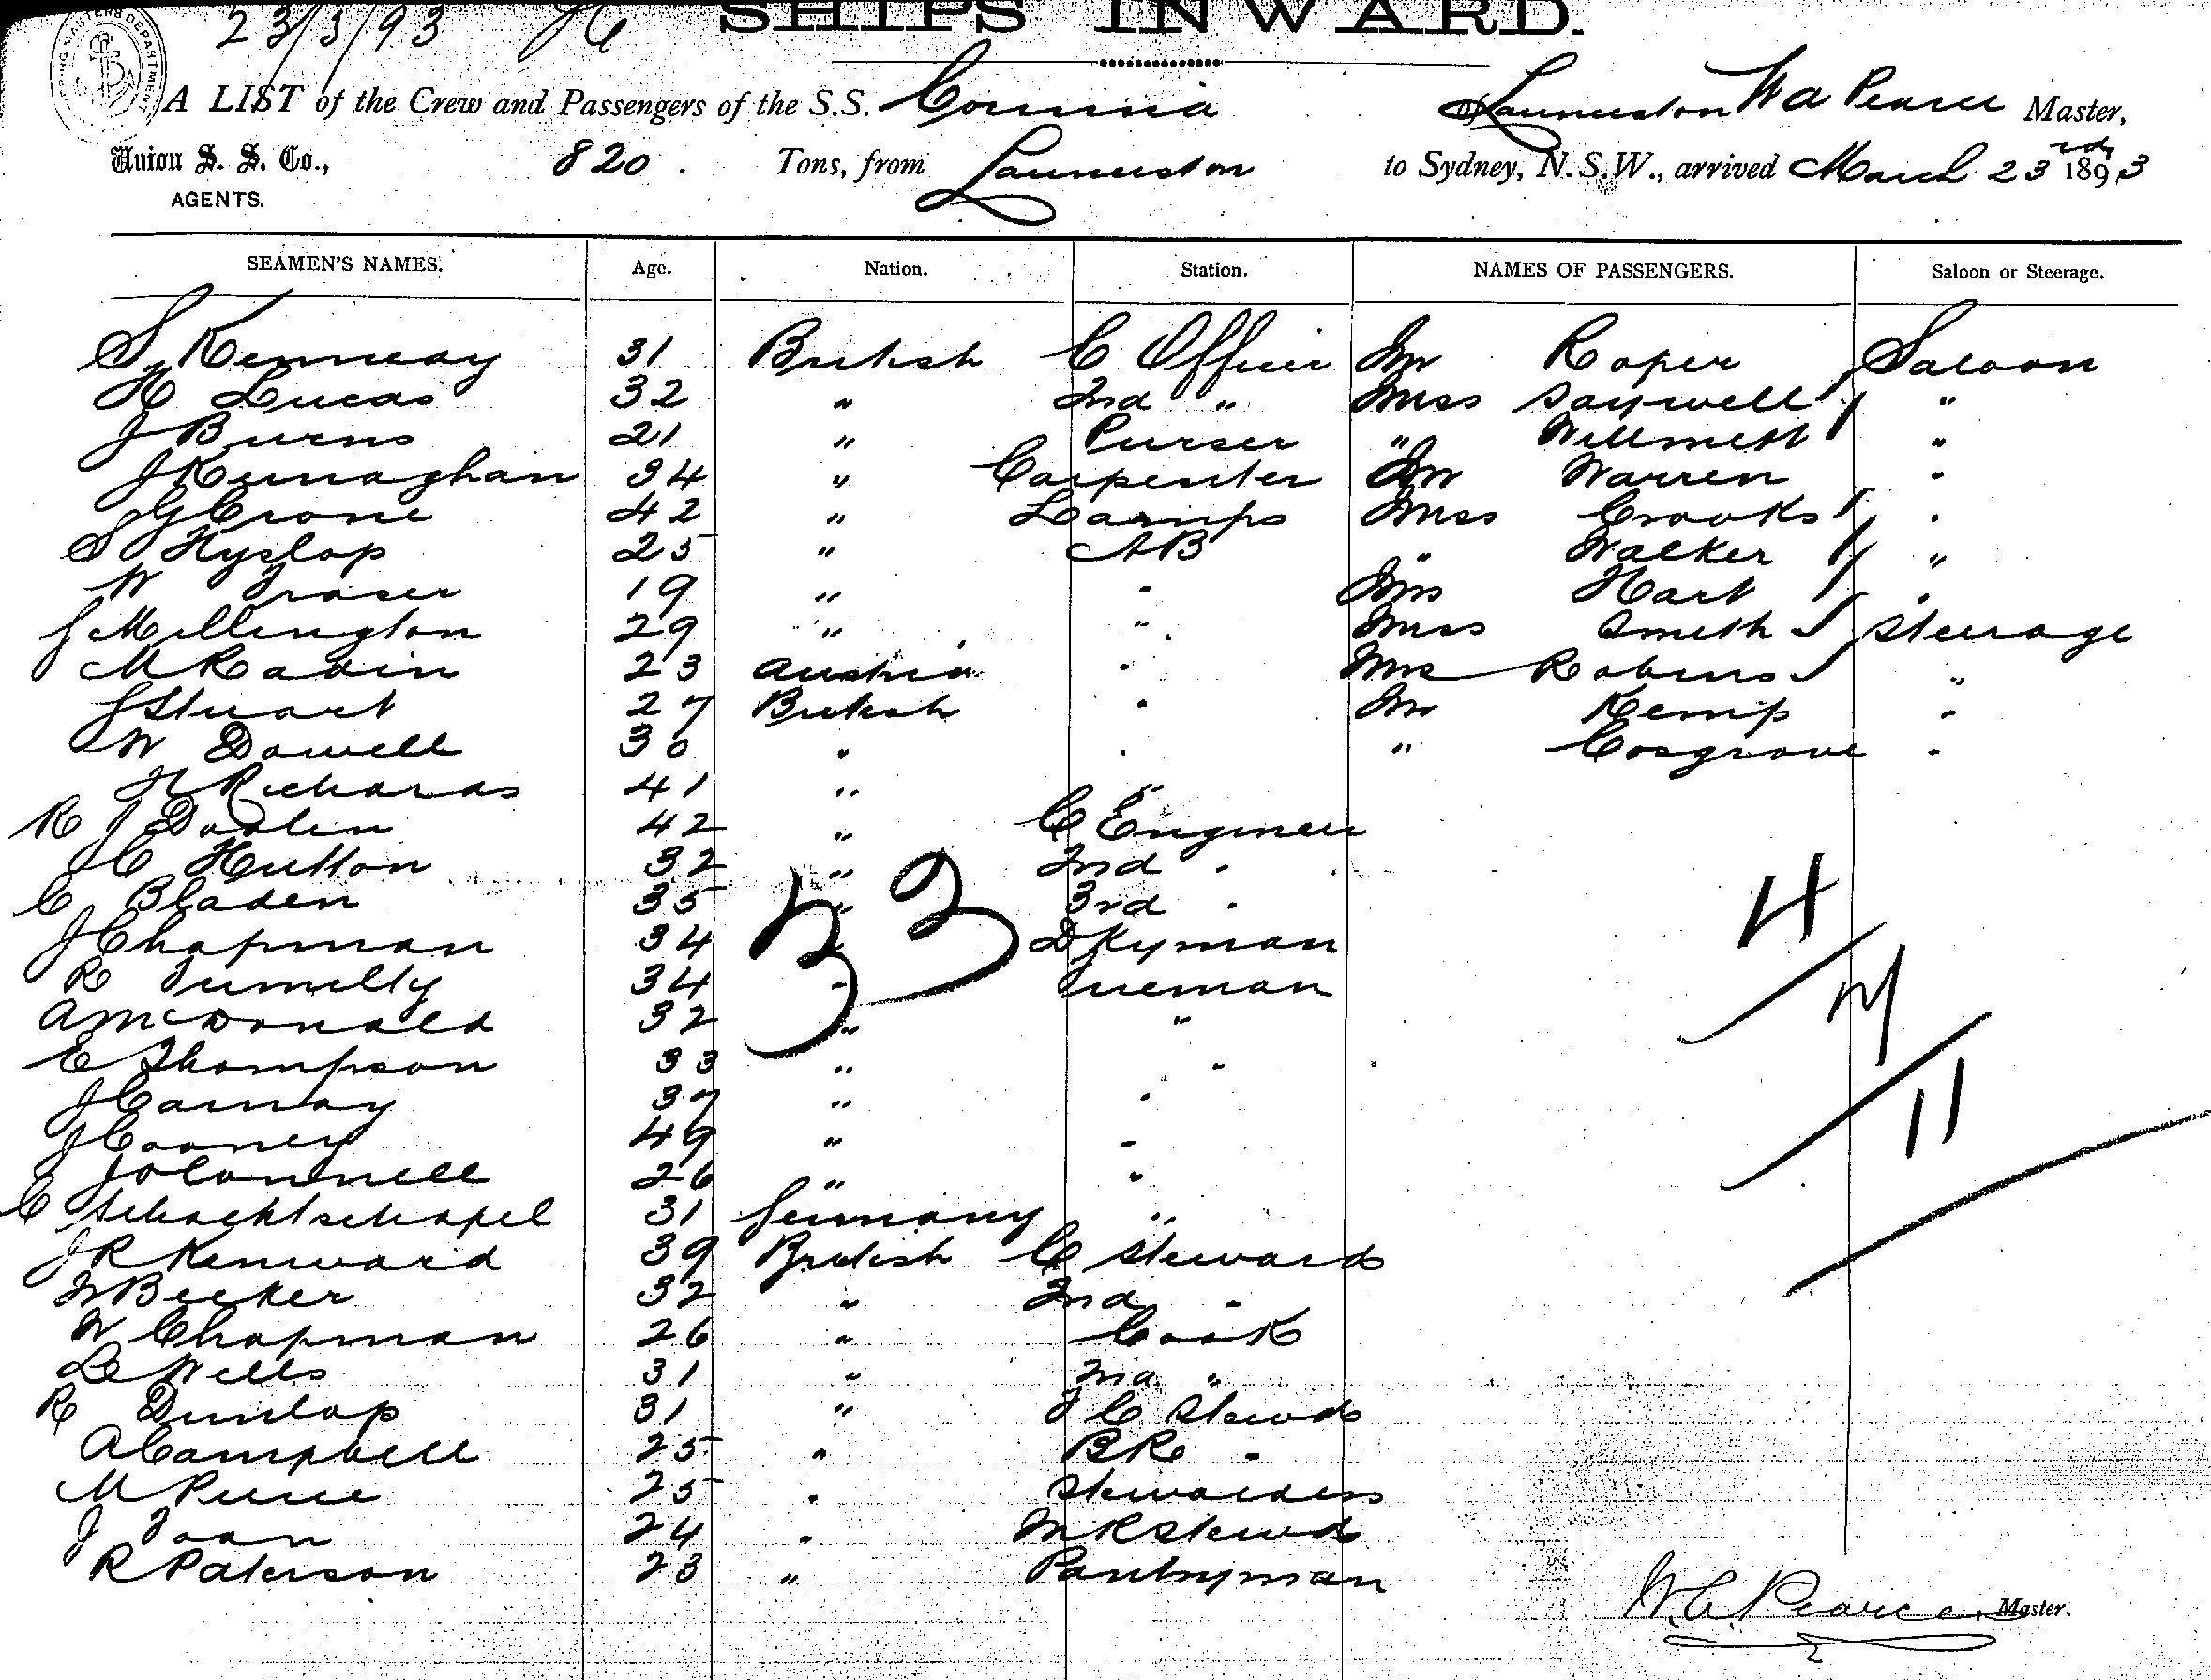 23/3/93
SHIPS INWARD.
A LIST of the Crew and Passengers of the S.S. Corinna of Launceston W A Pearce Master,
Union S. S. Co., 820. Tons, from Launceston to Sydney, N.S.W., arrived March 23rd 1893
AGENTS.
SEAMEN'S NAMES. Age. Nation. Station. NAMES OF PASSENGERS. Saloon or Steerage.
S Kenneay 31 British C Officer Mr Roper Saloon
H Lucas 32 " 2nd " Miss Saywell "
J Burns 21 " Purser " Willmett "
J Kernaghan 34 " Carpenter Mr Warren "
G Crone 42 " Lamps Miss Crooks "
S Hyslop 25 " AB " Walker "
W Fraser 19 " " Mrs Hart "
J Millington 29 " " Miss Smith Steerage
M Radin 23 Austria " Mrs Robins "
J Stuart 27 British " Mr Kemp "
W Dowell 30 " " " Cosgrove "
H Richards 41 " "
R J Doolin 42 " C Engineer
J C Hutton 32 " 2nd "
C Bladen 35 " 3rd "
J Chapman 34 " Dkyman
R Tumelty 34 " Fireman
A McDonald 32 " "
E Thompson 33 " "
J Carnay 37 " "
J Cooney 49 " "
J O Connell 26 " "
C Schachtschapel 31 Germany "
J R Kenward 39 British C Steward
W Becker 32 " 2nd "
W Chapman 26 " Cook
L Wells 31 " 2nd "
R Dunlop 31 " F C Stewd
A Campbell 25 " BR "
M Peirce 25 " Stewardess
J Toan 24 " M R Stewd
R Paterson 23 " Pantryman
33
4
7
11
W. A. Pearce, Master.